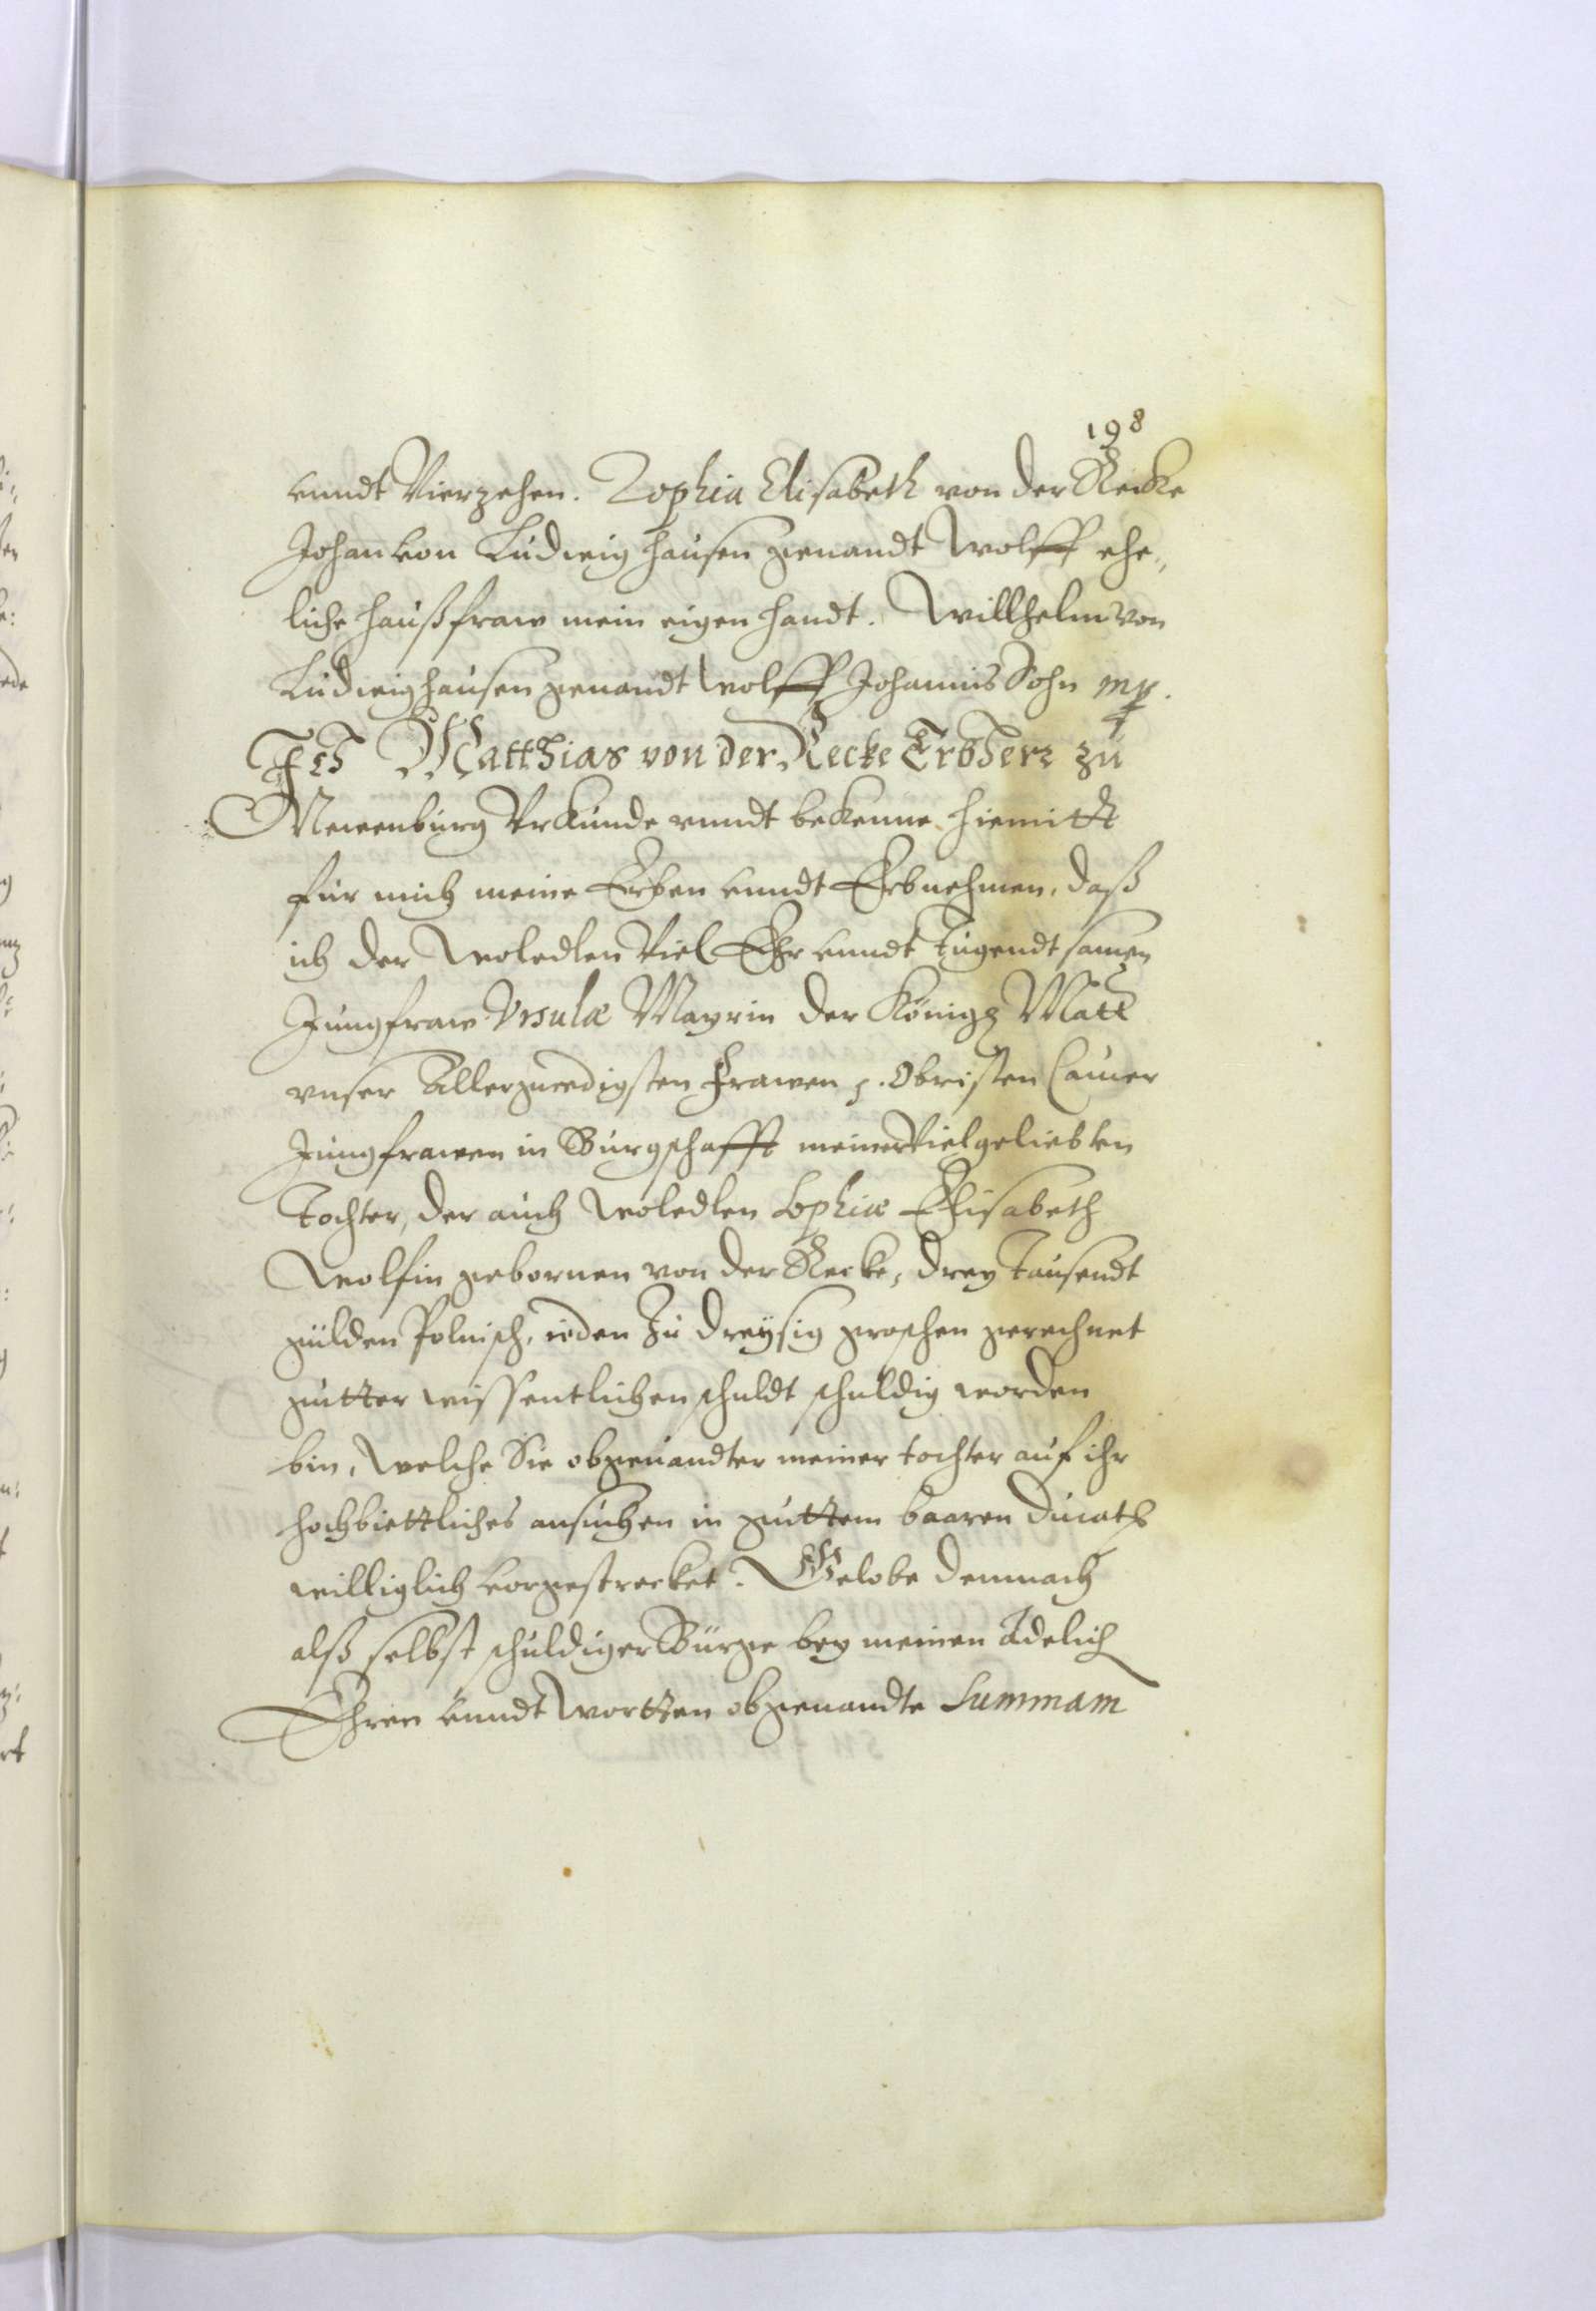 198
vnndt Vierzehen. Sophia Elisabeth von der Recke
Johan von Ludwig hausen genandt Wolff ehe„
liche haußfraw mein eigen handt. Willhelm von
Ludwighausen genandt Wolff Johannis Sohn mp.
Ich Matthias von der Recke Erbherr zu
Newenburg Vrkunde vnndt bekenne hiemitt
für mich meine Erben vnndt Erbnehmen, daß
ich der Woledlen Viel Ehr vnndt Tugendtsamen
Jungfraw Vrsulæ Mayrin der Königl Matt
vnser Allergnedigsten Frawen p. Obristen Camer
Jungfrawen in Burgschafft meiner Vielgeliebten
Tochter, der auch Woledlen Sophiæ Elisabeth
Wolfin gebornen von der Recke, drey Tausendt
gülden Polnisch, ieden zu dreysig groschen gerechnet
gutter wissentlichen schuldt schuldig worden
bin, Welche Sie obgenandter meiner tochter auf ihr
hochbiettliches ansuchen in guttem baaren Ducaten
williglich vorgestrecket. Gelobe demnach
alß selbst schuldiger Bürge bey meinen Adelich
Ehren vnndt Wortten obgenandte Summam